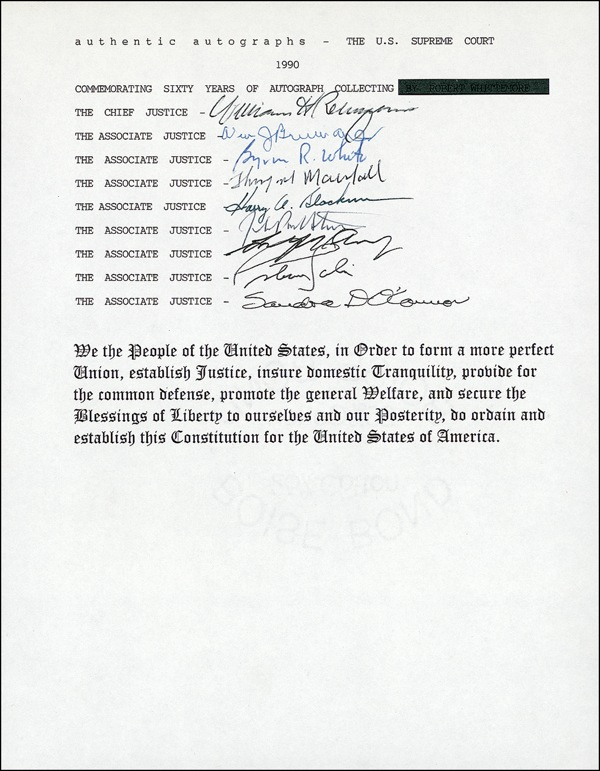 authentic autographs - THE U.S. SUPREME COURT
1990
COMMEMORATING SIXTY YEARS OF AUTOGRAPH COLLECTING BY ROBERT WHITTEMORE
THE CHIEF JUSTICE - William H Rehnquist
THE ASSOCIATE JUSTICE - Wm J Brennan Jr
THE ASSOCIATE JUSTICE - Byron R. White
THE ASSOCIATE JUSTICE - Thurgood Marshall
THE ASSOCIATE JUSTICE - Harry A. Blackmun
THE ASSOCIATE JUSTICE -
THE ASSOCIATE JUSTICE -
THE ASSOCIATE JUSTICE -
THE ASSOCIATE JUSTICE - Sandra D O'Connor
We the People of the United States, in Order to form a more perfect
Union, establish Justice, insure domestic Tranquility, provide for
the common defense, promote the general Welfare, and secure the
Blessings of Liberty to ourselves and our Posterity, do ordain and
establish this Constitution for the United States of America.
25% Cotton
BOISE BOND